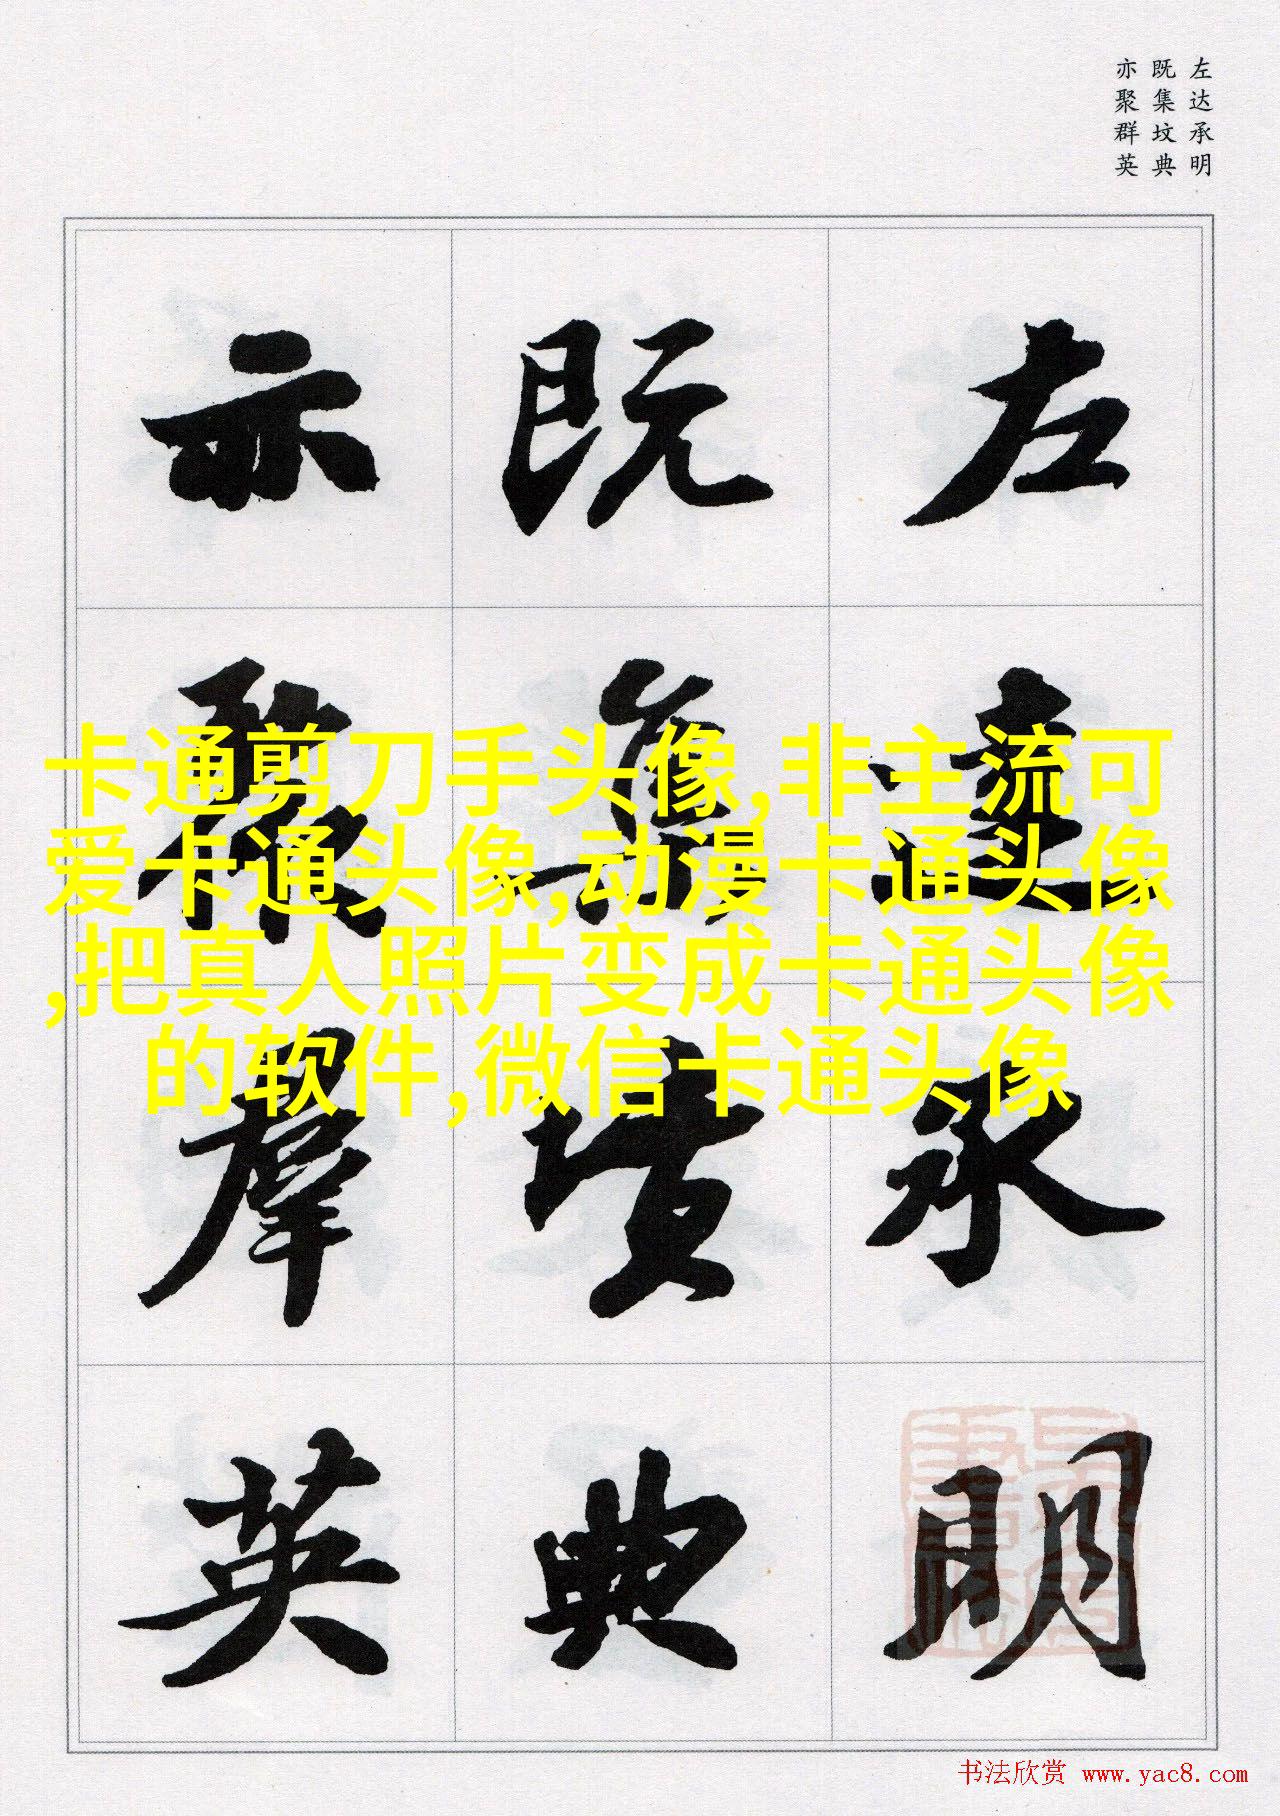 左达承明
既集坟典
亦聚群英
左達承明
既集墳典
亦聚羣英
卡通剪刀手头像,非主流可
爱卡通头像,动漫卡通头像
,把真人照片变成卡通头像
的软件,微信卡通头像
书法欣赏 www.yac8.com